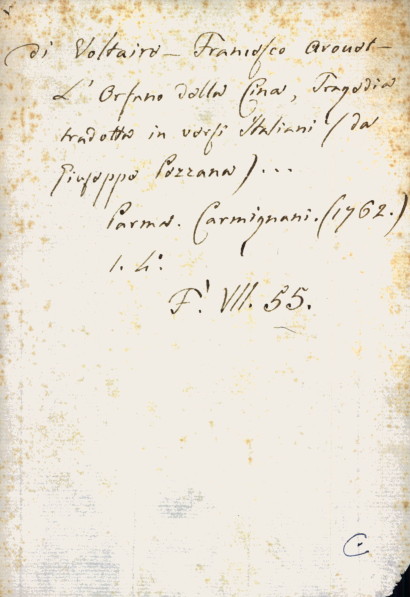 di Voltaire – Francesco Arouet –
L' Orfano della Cina, Tragedia
tradotta in versi Italiani (da
Giuseppe Pezzana) ...
Parma. Carmignani. (1762.)
1. 4º.
F. VII. 55.
C.